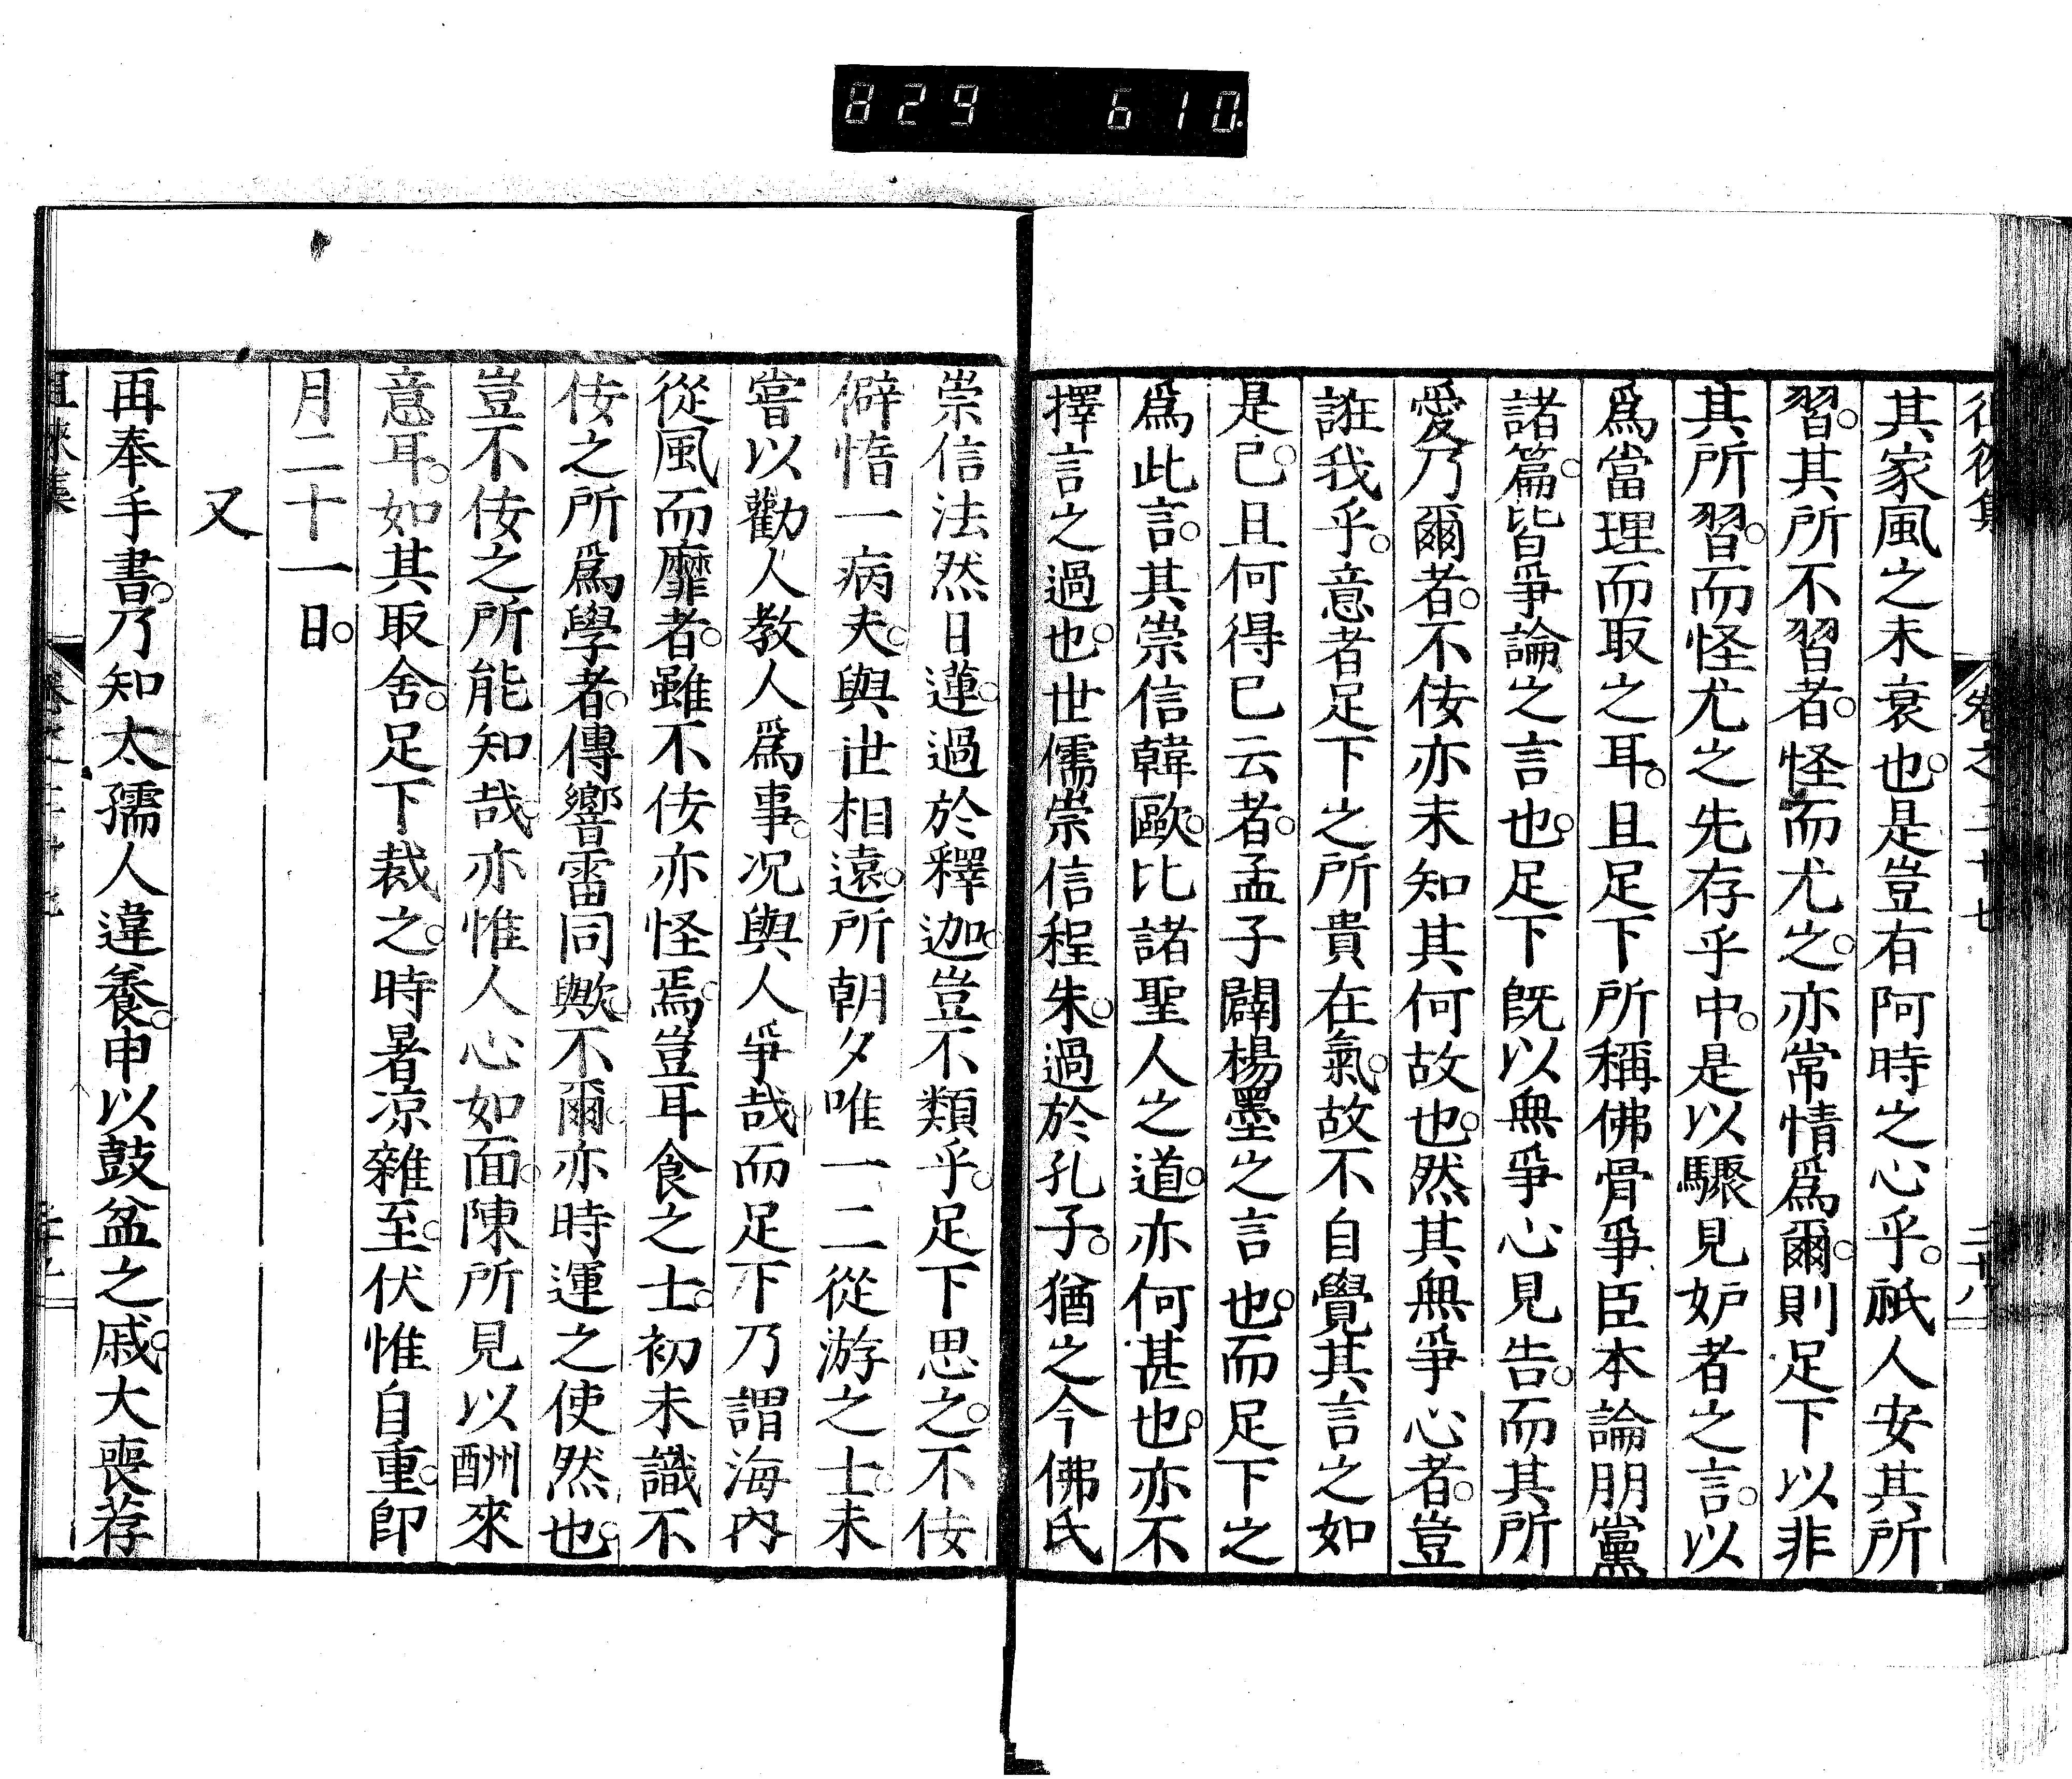 829 610
卷之二十七 二十八
其家風之未衰也。是豈有阿時之心乎。祇人安其所
習。其所不習者。怪而尤之。亦常情爲爾。則足下以非
其所習。而怪尤之先存乎中。是以驟見妒者之言。以
爲當理而取之耳。且足下所稱佛骨爭臣本論朋黨
諸篇。皆爭論之言也。足下旣以無爭心見告。而其所
愛乃爾者。不佞亦未知其何故也。然其無爭心者。豈
誑我乎。意者足下之所貴在氣。故不自覺其言之如
是已。且何得已云者。孟子闢楊墨之言也。而足下之
爲此言。其崇信韓歐。比諸聖人之道。亦何甚也。亦不
擇言之過也。世儒崇信程朱。過於孔子。猶之今佛氏
崇信法然日蓮。過於釋迦。豈不類乎。足下思之。不佞
僻惰一病夫。與世相遠。所朝夕唯一二從游之士。未
嘗以勸人教人爲事。况與人爭哉。而足下乃謂海内
從風而靡者。雖不佞亦怪焉。豈耳食之士。初未識不
佞之所爲學者。傳響雷同歟。不爾。亦時運之使然也。
豈不佞之所能知哉。亦惟人心如面。陳所見以酬來
意耳。如其取舍。足下裁之。時暑凉雜至。伏惟自重。卽
月二十一日。
又
再奉手書。乃知太孺人違養。申以鼓盆之戚。大喪荐